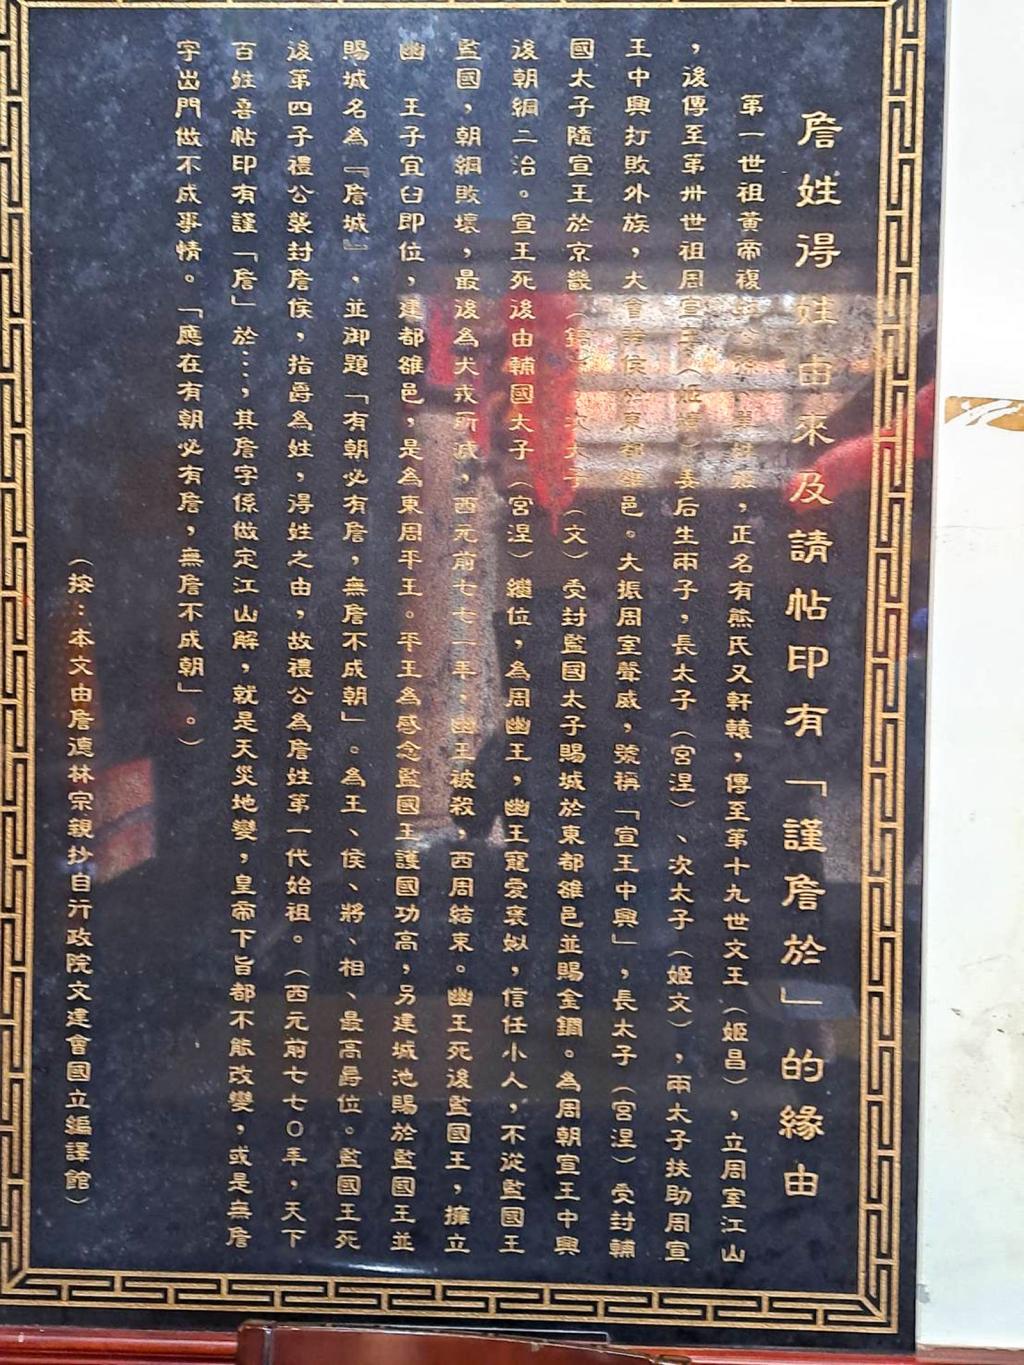 詹姓得姓由來及請帖印有「謹詹於」的緣由
第一世祖黃帝複，正名有熊氏又軒轅，傳至第十九世文王（姬昌），立周室江山
，後傳至第卅世祖周宣姜后生兩子，長太子（宮涅）、次太子（姬文），兩太子扶助周宣
王中興打敗外族，大會諸侯於東都雒邑。大振周室聲威，號稱「宣王中興」，長太子（宮涅）受封輔
國太子隨宣王於京畿次太子（文）受封監國太子賜城於東都雒邑並賜金鐧。為周朝宣王中興
後朝綱二治。宣王死後由輔國太子（宮涅）繼位，為周幽王，幽王寵愛褒姒，信任小人，不從監國王
監國，朝綱敗壞，最後為犬戎所滅，西元前七七一年，幽王被殺，西周結束。幽王死後監國王，擁立
幽　王子宜臼即位，建都雒邑，是為東周平王。平王為感念監國王護國功高，另建城池賜於監國王並
賜城名為『詹城』，並御題「有朝必有詹，無詹不成朝」。為王、侯、將、相、最高爵位。監國王死
後第四子禮公襲封詹侯，指爵為姓，得姓之由，故禮公為詹姓第一代始祖。（西元前七七０年，天下
百姓喜帖印有謹「詹」於…，其詹字係做定江山解，就是天災地變，皇帝下旨都不能改變，或是無詹
字出門做不成事情。「應在有朝必有詹，無詹不成朝」。）
（按：本文由詹德林宗親抄自行政院文建會國立編譯館）